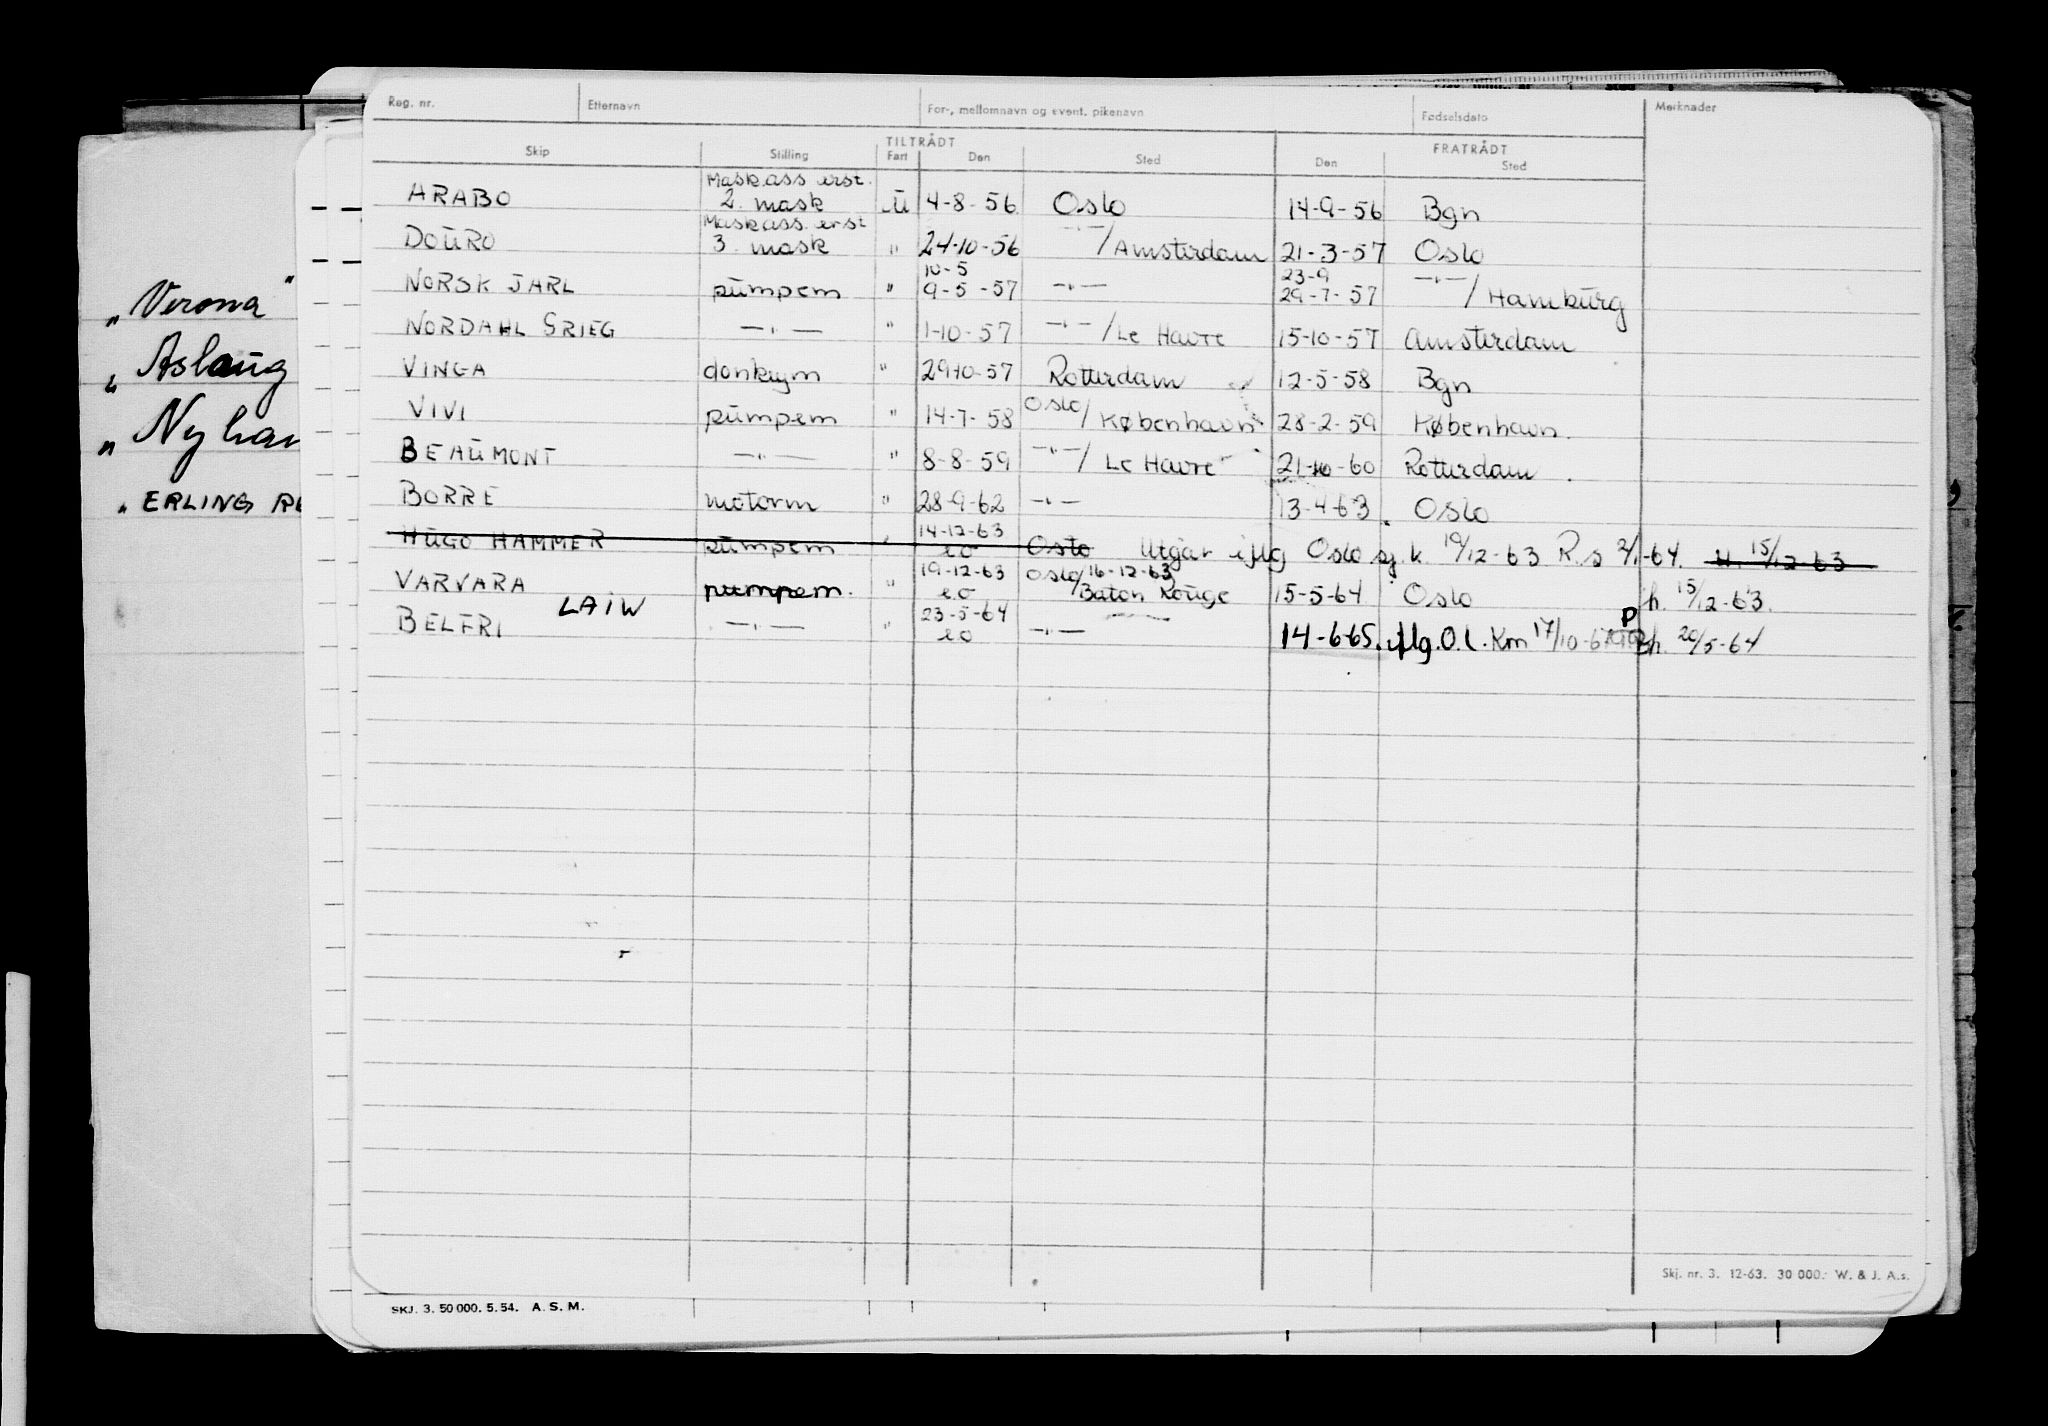 Reg. nr. Etternavn For-, mellomnavn og event. pikenavn Fødselsdato Merknader
TILTRÅDT FRATRÅDT
Skip Stilling Fart Den Sted Den Sted
Mask.ass erst.
ARABO 2. mask U 4-8-56 Oslo 14-9-56 Bgn
Mask.ass. erst
DOURO 3. mask " 24-10-56 -"-/Amsterdam 21-3-57 Oslo
10-5 23-9
NORSK JARL pumpem " 9-5-57 -"- 29-7-57 -"-/Hamburg
NORDAHL GRIEG -"- " 1-10-57 -"-/Le Havre 15-10-57 Amsterdam
VINGA donkym " 29-10-57 Rotterdam 12-5-58 Bgn
VIVI pumpem " 14-7-58 Oslo/København 28-2-59 København.
BEAUMONT -"- " 8-8-59 -"-/Le Havre 21-10-60 Rotterdam
BORRE motorm " 28-9-62 -"- 13-4-63. Oslo
14-12-63
HUGO HAMMER pumpem " eo Oslo Utgår iflg Oslo sj.k. 19/12-63 R.s 2/1-64. H. 15/12-63
19-12-63 Oslo/16-12-63
VARVARA pumpem. " eo Baton Rouge 15-5-64 Oslo h. 15/12-63.
LAIW 23-5-64 P
BELFRI -"- " eo -"- 14-6-65. iflg. O.l. Km 17/10-67 h. 20/5-64
„Verona"
„Aslaug
„Nyhav
„ERLING
Skj. nr. 3. 12-63. 30 000. W. & J. A.s.
SKJ. 3. 50 000. 5. 54. A. S. M.